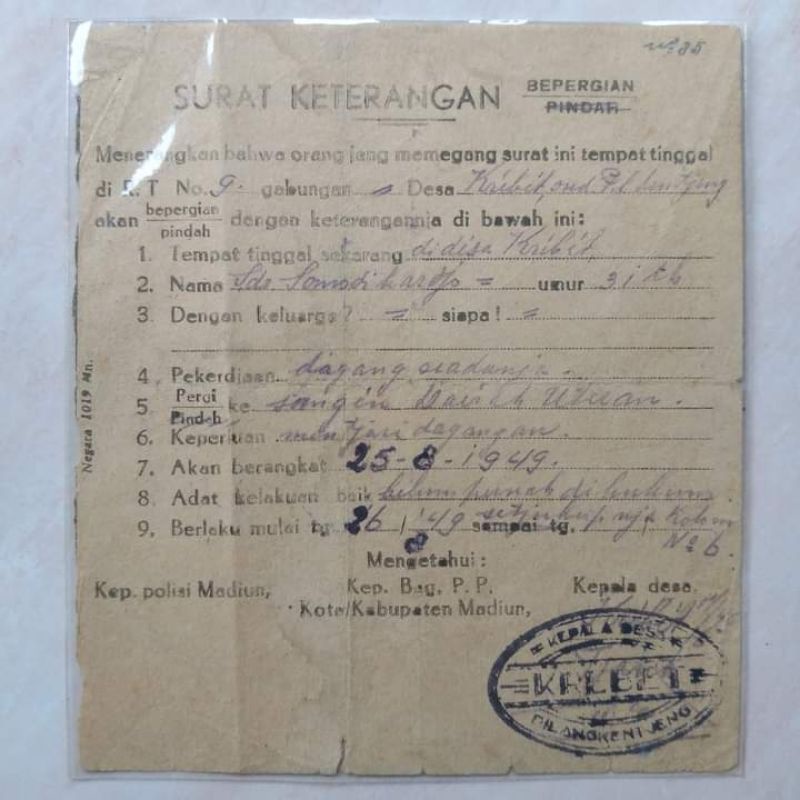 No 85
SURAT KETERANGAN BEPERGIAN
PINDAH
Menerangkan bahwa orang jang memegang surat ini tempat tinggal
di R.T No. 9. gabungan = Desa Kribit, ond. P.l.kentjeng
akan bepergian dengan keterangannja di bawah ini:
pindah
1. Tempat tinggal sekarang didisa Kribit
2. Nama Sdr. Somodihardjo = umur 31 th
3. Dengan keluarga? = siapa! =
4. Pekerdjaan dagang seadanja.
5 Pergi ke Daerah Uteran.
Pindah
6. Keperluan mentjari dagangan.
7. Akan berangkat 25-8-1949.
8. Adat kelakuan baik belum pernah dihukum
9. Berlaku mulai tg. 26/8 '49 sampai tg. setjukup nja Kolom
No 6.
Mengetahui:
Kep. polisi Madiun, Kep. Bag. P. P. Kepala desa.
Kota/Kabupaten Madiun,
KEPALA DESA
KREBET
PILANGKENTJENG
Negara 1019 Mn.